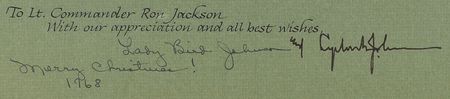 To Lt. Commander Ron Jackson
With our appreciation and all best wishes
Lady Bird Johnson and Lyndon B. Johnson
Merry Christmas!
1968